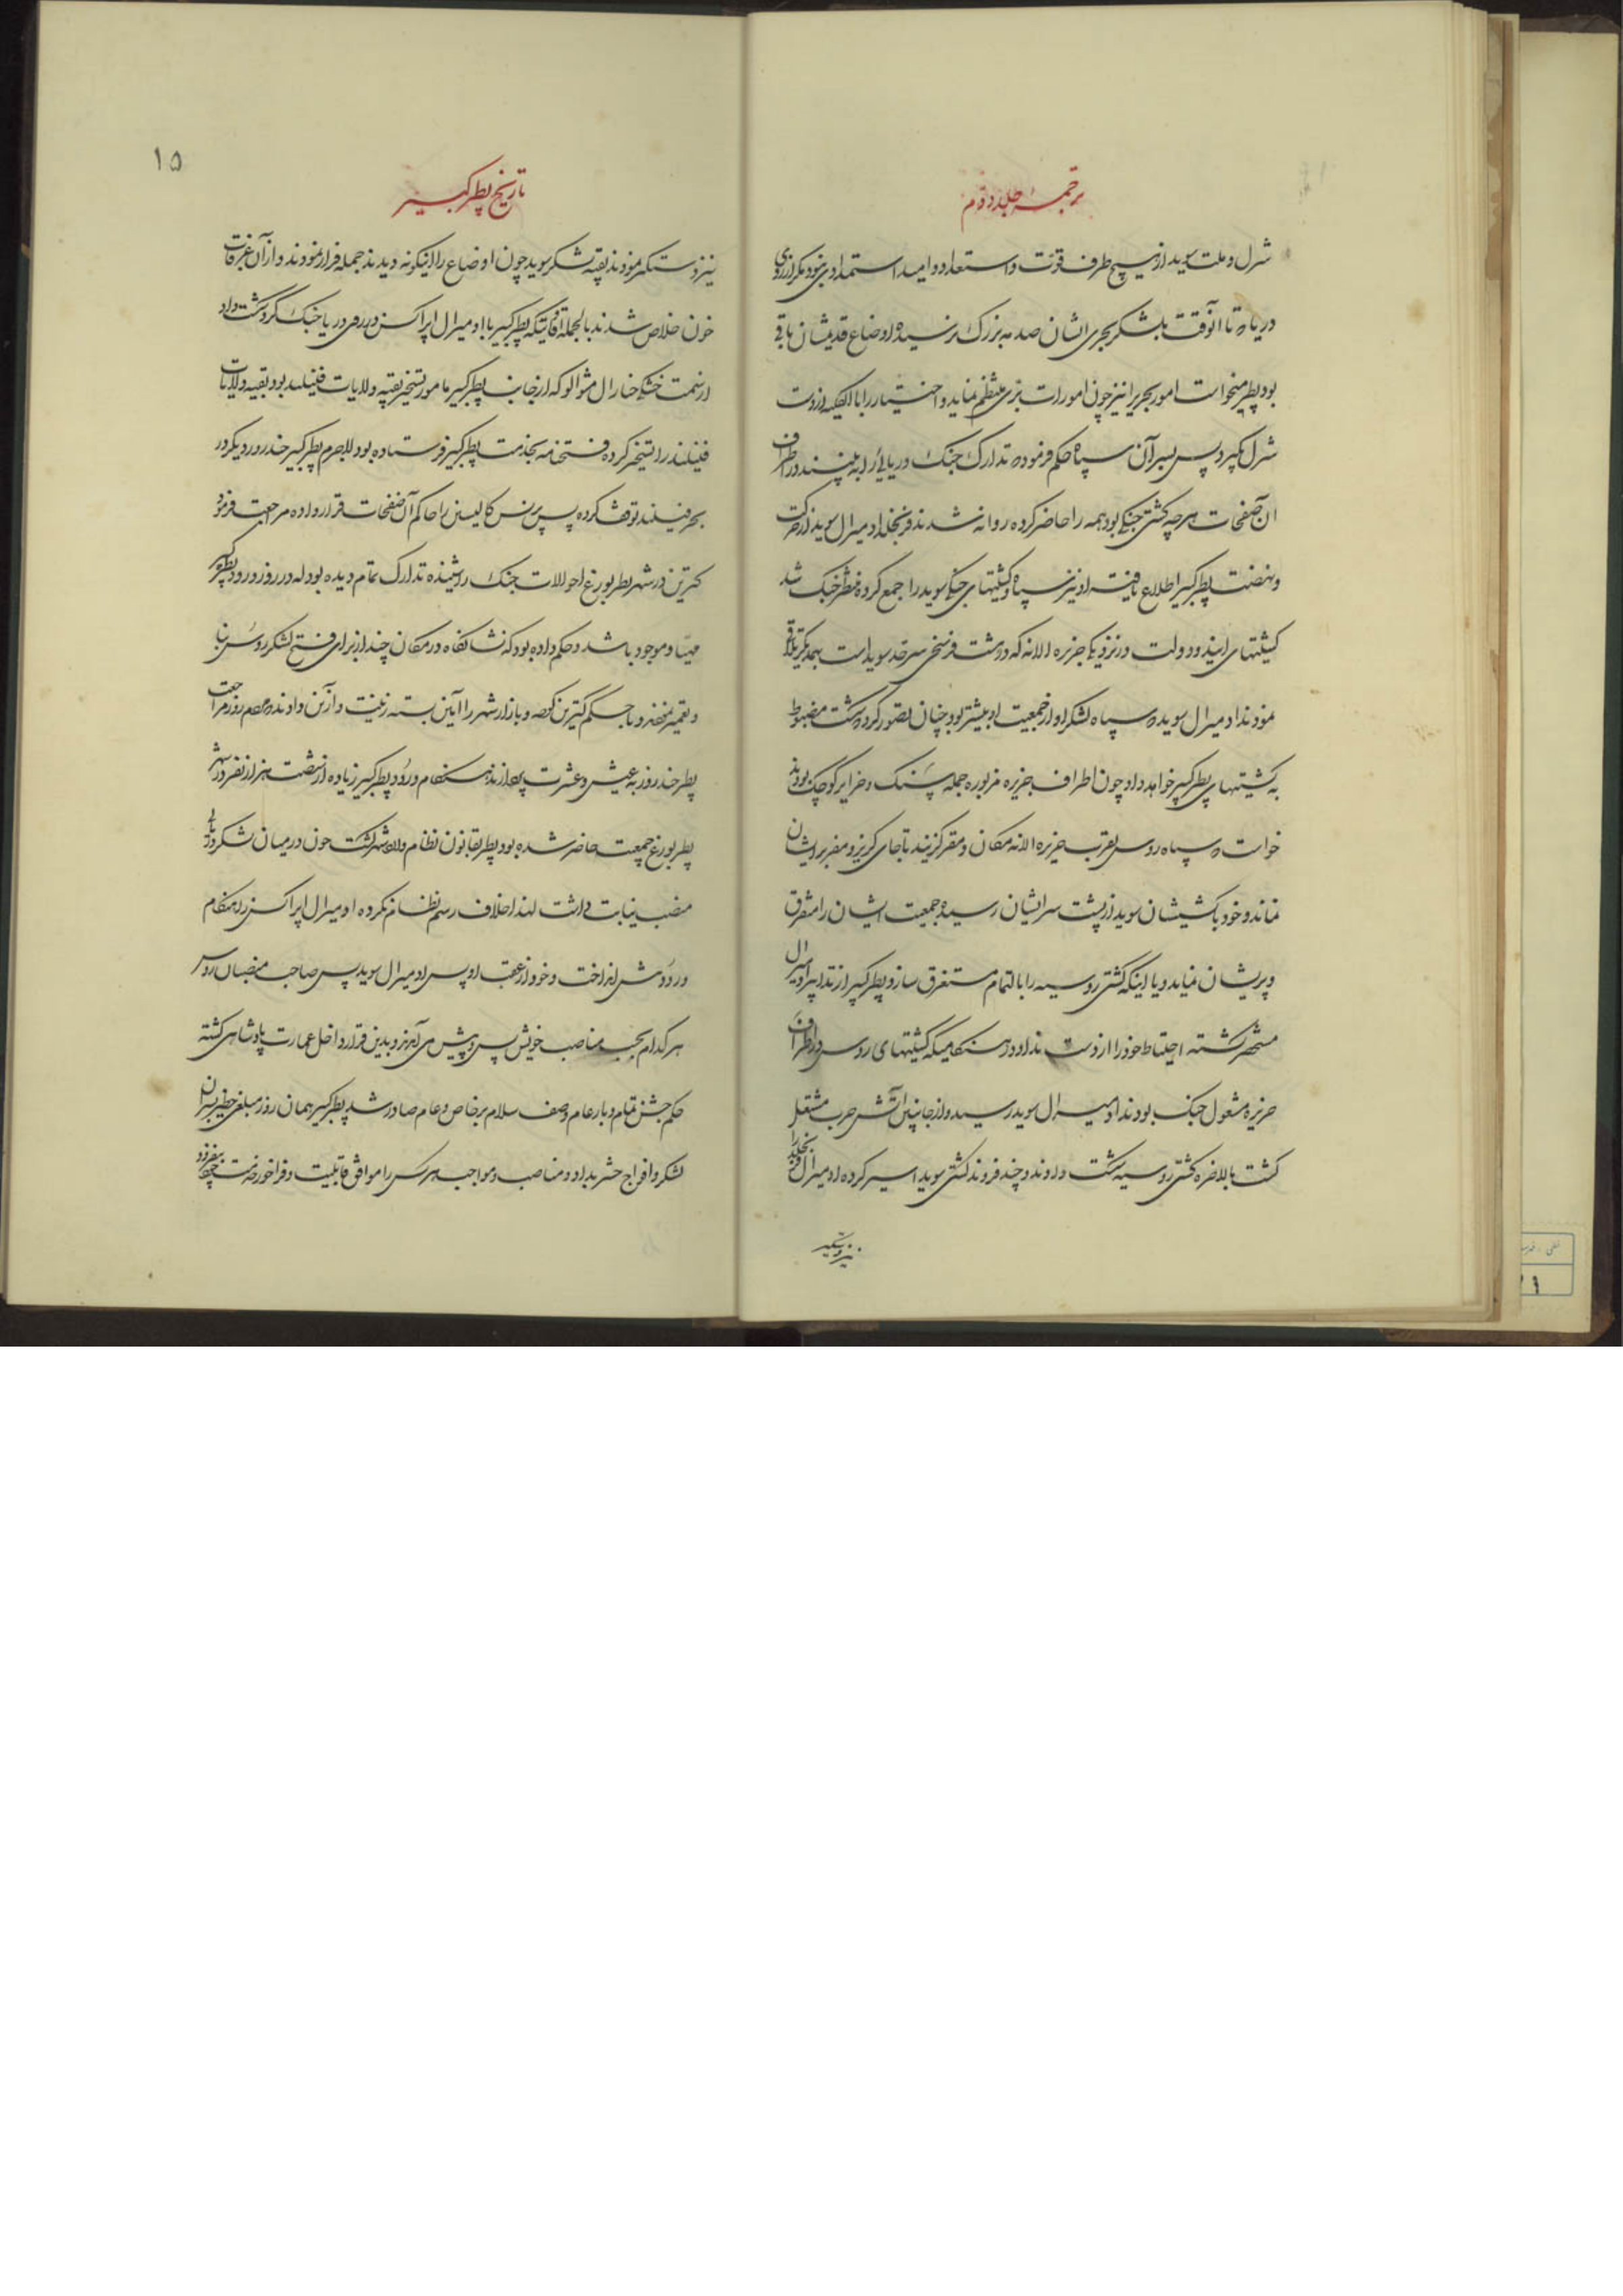 ترجمه جلد دوم
شرل و ملت سوید از هیچ طرف قوت و استعداد و امید استمدادی نبود مگر از روی
دریا که تا آنوقت بلشکر بحری ایشان صدمه بزرگ نرسیده و اوضاع قدیمشان باقی
بود پطر میخواست امور بحریرا نیز چون امورات بری منتظم نماید و اختیار را بالکلیه از دست
شرل بگیرد پس بسرآن سپاه حکم فرموده تدارک جنک دریائی را به بینند در اطراف
ان صفحات هرچه کشتی جنکی بود همه را حاضر کرده روانه شدند اومیرال سوید از حرکت
و نهضت پطر کبیر اطلاع یافته او نیز سپاه و کشتیهای جنکی سوید را جمع کرده منتظر جنک شد
کشتیهای ایندو دولت در نزدیکی جزیره الانه که در هشت فرسخی سرحد سوید است بهمدیگر تلاقی
نمودند اومیرال سوید که سپاه لشکر او از جمعیت او بیشتر بود چنان تصور کرد که شکست مضبوط
به کشتیهای پطر کبیر خواهد داد و چون اطراف جزیره مزبوره جمله سنک و جزایر کوچک بودند
خواست که سپاه روس بقرب جزیره الانه مکان و مقر گزینند تا جای گریز و مفر برایشان
نماند و خود با کشتیشان سوید از پشت سر ایشان رسیده جمعیت ایشان را متفرق
و پریشان نماید و یا اینکه کشتی روسیه را بالتمام مستغرق سازد پطر کبیر از تدابیر اومیرال
مستحضر گشته احتیاط خود را از دست نداد در هنگامیکه کشتیهای روس در اطراف
جزیره مشغول جنک بودند اومیرال سوید رسیده از جانبین آتش حرب مشتعل
گشت بالاخره کشتی روسیه شکست دادند و چند فروند کشتی سوید اسیر کرده اومیرال را
نیز دستگیر
۱۵
تاریخ پطر کبیر
نیز دستگیر نمودند بقیه لشکر سوید چون اوضاع را اینگونه دیدند جمله فرار نمودند و از آن غرقاب
خون خلاص شدند بالجمله وقتیکه پطر کبیر با اومیرال اپراکسن در روی دریا جنک کرده شکست داد
از سمت خشکی جنرال که از جانب پطر کبیر مامور تسخیر بقیه ولایات فینلند بود بقیه ولایات
فینلند را تسخیر کرده فتحنامه بخدمت پطر کبیر فرستاده بود لاجرم پطر کبیر چند روز دیگر در
بحر فینلند توقف کرده پس پرنس کالیسن را حاکم آن صفحات قرار داده مراجعت فرمود
کترین در شهر پطربورغ احوالات جنک را شنیده تدارک تمام دیده بود که در روز ورود پطر کبیر
مهیا و موجود باشد و حکم داده بود که نشانگاه در مکان چند از برای فتح لشکر روس بنا
و تعمیر نمودند و با حکم کترین کوچه و بازار شهر را آئین بسته زینت و آذین دادند روز مراجعت
پطر چند روز به عیش و عشرت پرداختند هنگام ورود پطر کبیر زیاده از شصت هزار نفر در شهر
پطربورغ جمعیت حاضر شده بود پطر بقانون نظام داخل شهر گشت چون در میان لشکر دریائی
منصب نیابت داشت لهذا خلاف رسم نظام نکرده اومیرال اپراکسن را هنگام
ورود پیش انداخت و خود از عقب او پس اومیرال سوید پس صاحب منصبان روس
هر کدام بحسب مناصب خویش پس و پیش می آمدند و بدین قرار داخل عمارت پادشاهی گشته
حکم جشن تمام و بار عام و صف سلام بر خاص و عام صادر شد پطر کبیر همان روز مبلغی خطیر بسران
لشکر و افواج حشر بداد و مناصب و مواجب هر کس را موافق قابلیت و فراخور خدمت بیفزود